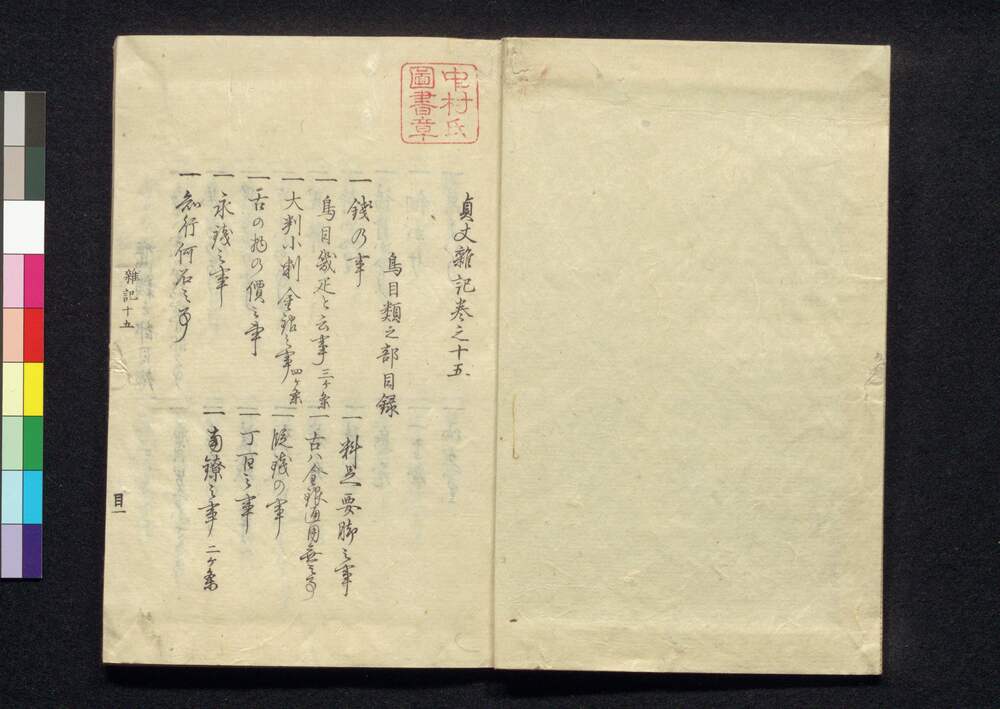 中村氏
圖書章
貞丈雜記巻之十五
鳥目類之部目録
一 錢の事
一 料足要脚之事
一 鳥目幾疋と云事 三ヶ条
一 古ハ金銀通用無之事
一 大判小判金銀之事 四ヶ条
一 錢の事
一 古の物の價之事
一 丁百之事
一 永錢之事
一 南鐐之事 二ヶ条
一 知行何石之事
雜記十五
目一